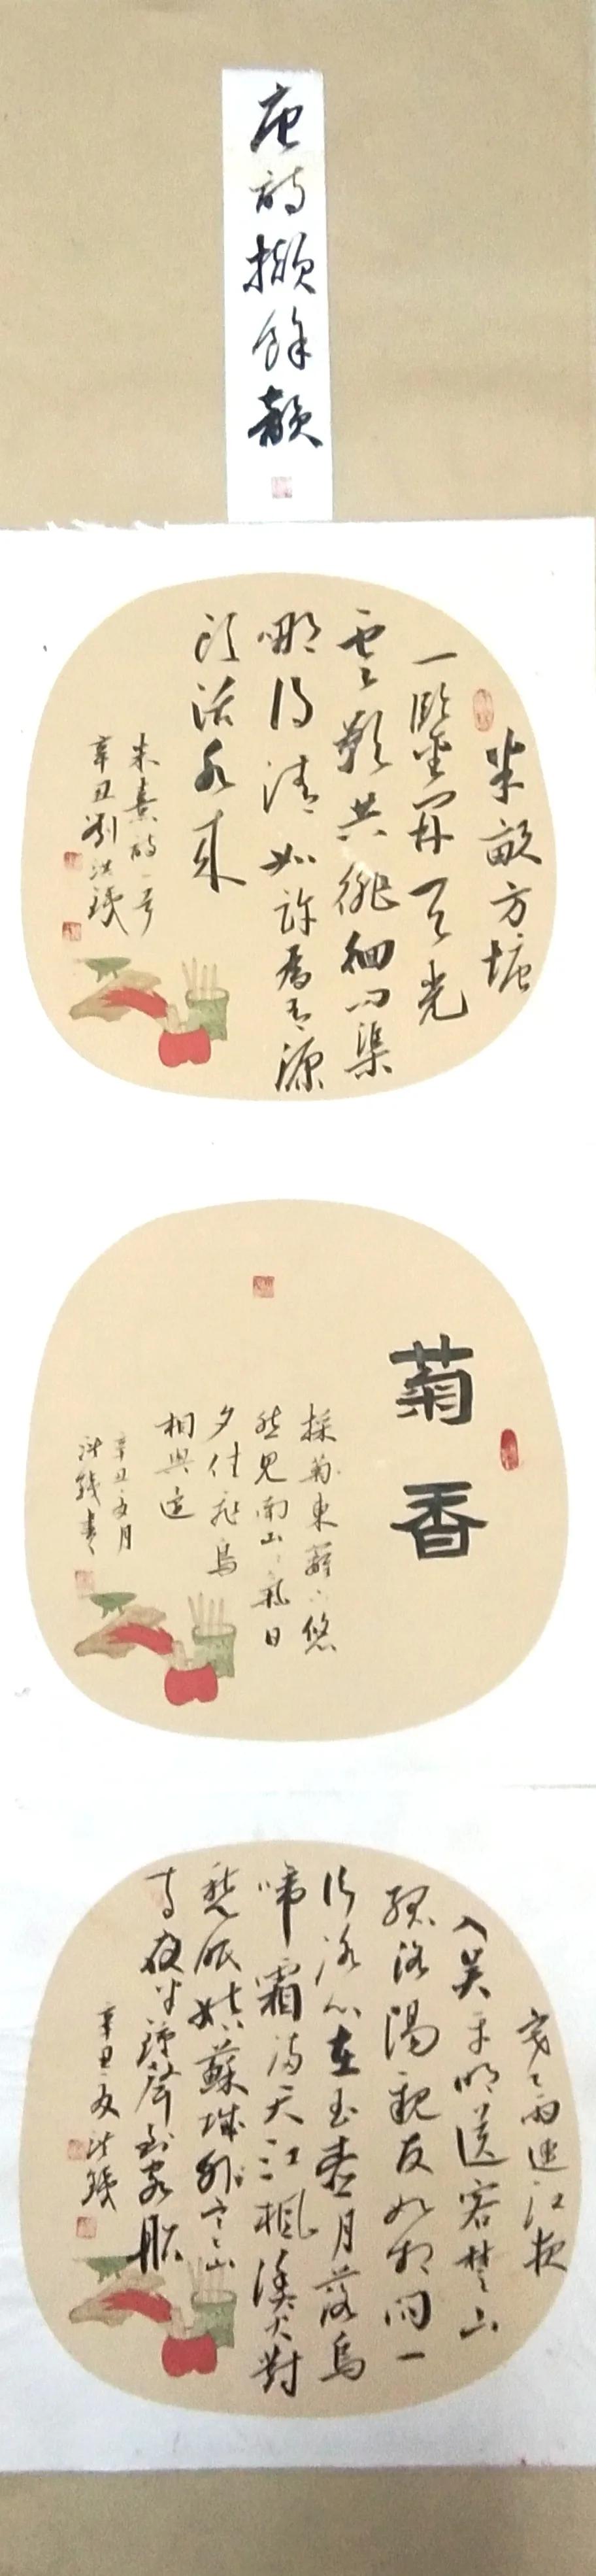 唐詩擷餘韻
半畝方塘
一鑒開天光
雲影共徘徊問渠
哪得清如許為有源
頭活水來
朱熹詩一首
辛丑劉洪錢
菊香
採菊東籬下悠
然見南山山氣日
夕佳飛鳥
相與還
辛丑夏月
洪錢書
寒雨連江夜
入吴平明送客楚山
孤洛陽親友如相問一
片冰心在玉壺月落烏
啼霜滿天江楓漁火對
愁眠姑蘇城外寒山
寺夜半鐘聲到客船
辛丑夏洪錢